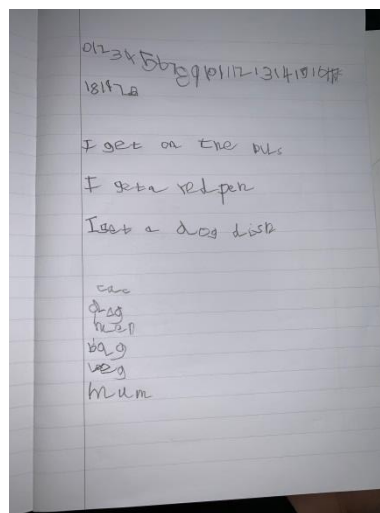 01234567891011121314151617
181920
I get on the bus
I get a red pen
I get a dog dish
dog
hen
bag
mum